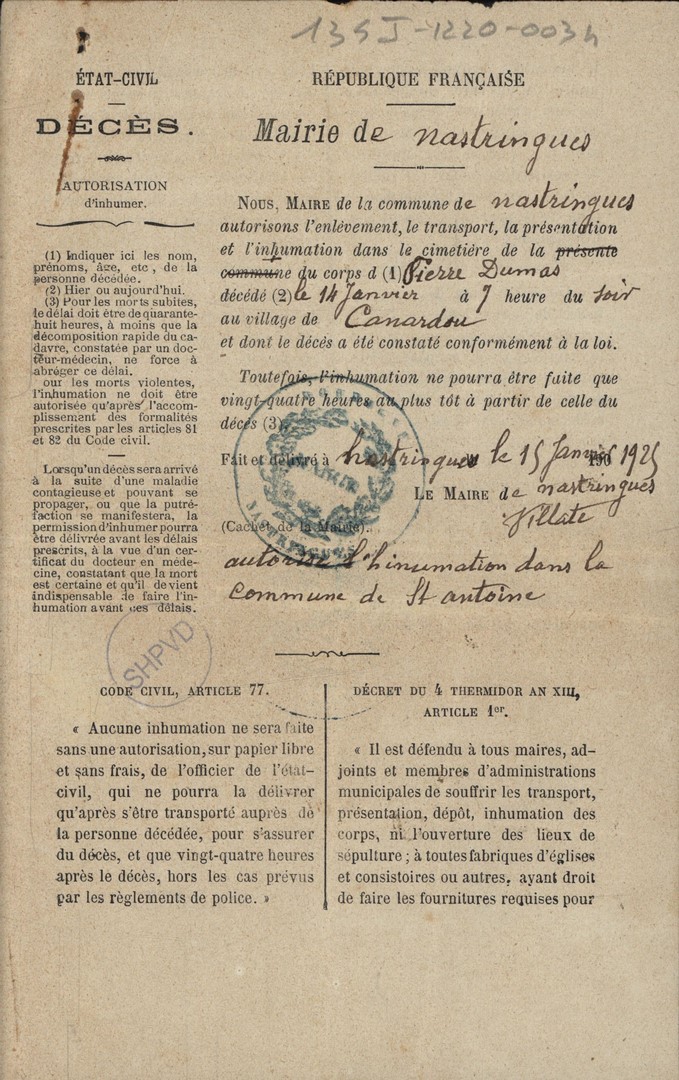 135 J-1220-0034
ÉTAT-CIVIL
DÉCÈS.
AUTORISATION
d'inhumer.
(1) Indiquer ici les nom,
prénoms, âge, etc, de la
personne décédée.
(2) Hier ou aujourd'hui.
(3) Pour les morts subites,
le délai doit être de quarante-
huit heures, à moins que la
décomposition rapide du ca-
davre, constatée par un doc-
teur-médecin, ne force à
abréger ce délai.
our les morts violentes,
l'inhumation ne doit être
autorisée qu'après l'accom-
plissement des formalités
prescrites par les articles 81
et 82 du Code civil.
Lorsqu'un décès sera arrivé
à la suite d'une maladie
contagieuse et pouvant se
propager, ou que la putré-
faction se manifestera, la
permission d'inhumer pourra
être délivrée avant les délais
prescrits, à la vue d'un cer-
tificat du docteur en méde-
cine, constatant que la mort
est certaine et qu'il devient
indispensable de faire l'in-
humation avant ces délais.
RÉPUBLIQUE FRANÇAISE
Mairie de nastringues
NOUS, MAIRE de la commune de nastringues
autorisons l'enlèvement, le transport, la présentation
et l'inhumation dans le cimetière de la présente
commune du corps d (1) Pierre Dumas
décédé (2) le 14 Janvier à 7 heure du soir
au village de Canardou
et dont le décès a été constaté conformément à la loi.
Toutefois, l'inhumation ne pourra être faite que
vingt-quatre heures au plus tôt à partir de celle du
décès (3).
Fait et délivré à nastringues le 15 Janvier 190 1925
LE MAIRE de nastringues
Villate
(Cachet de la Mairie).
autorise l'hinumation dans la
commune de St antoine
SHPVD
CODE CIVIL, ARTICLE 77.
« Aucune inhumation ne sera faite
sans une autorisation, sur papier libre
et sans frais, de l'officier de l'état-
civil, qui ne pourra la délivrer
qu'après s'être transporté auprès de
la personne décédée, pour s'assurer
du décès, et que vingt-quatre heures
après le décès, hors les cas prévus
par les règlements de police. »
DÉCRET DU 4 THERMIDOR AN XIII,
ARTICLE 1er.
« Il est défendu à tous maires, ad-
joints et membres d'administrations
municipales de souffrir les transport,
présentation, dépôt, inhumation des
corps, ni l'ouverture des lieux de
sépulture ; à toutes fabriques d'églises
et consistoires ou autres, ayant droit
de faire les fournitures requises pour